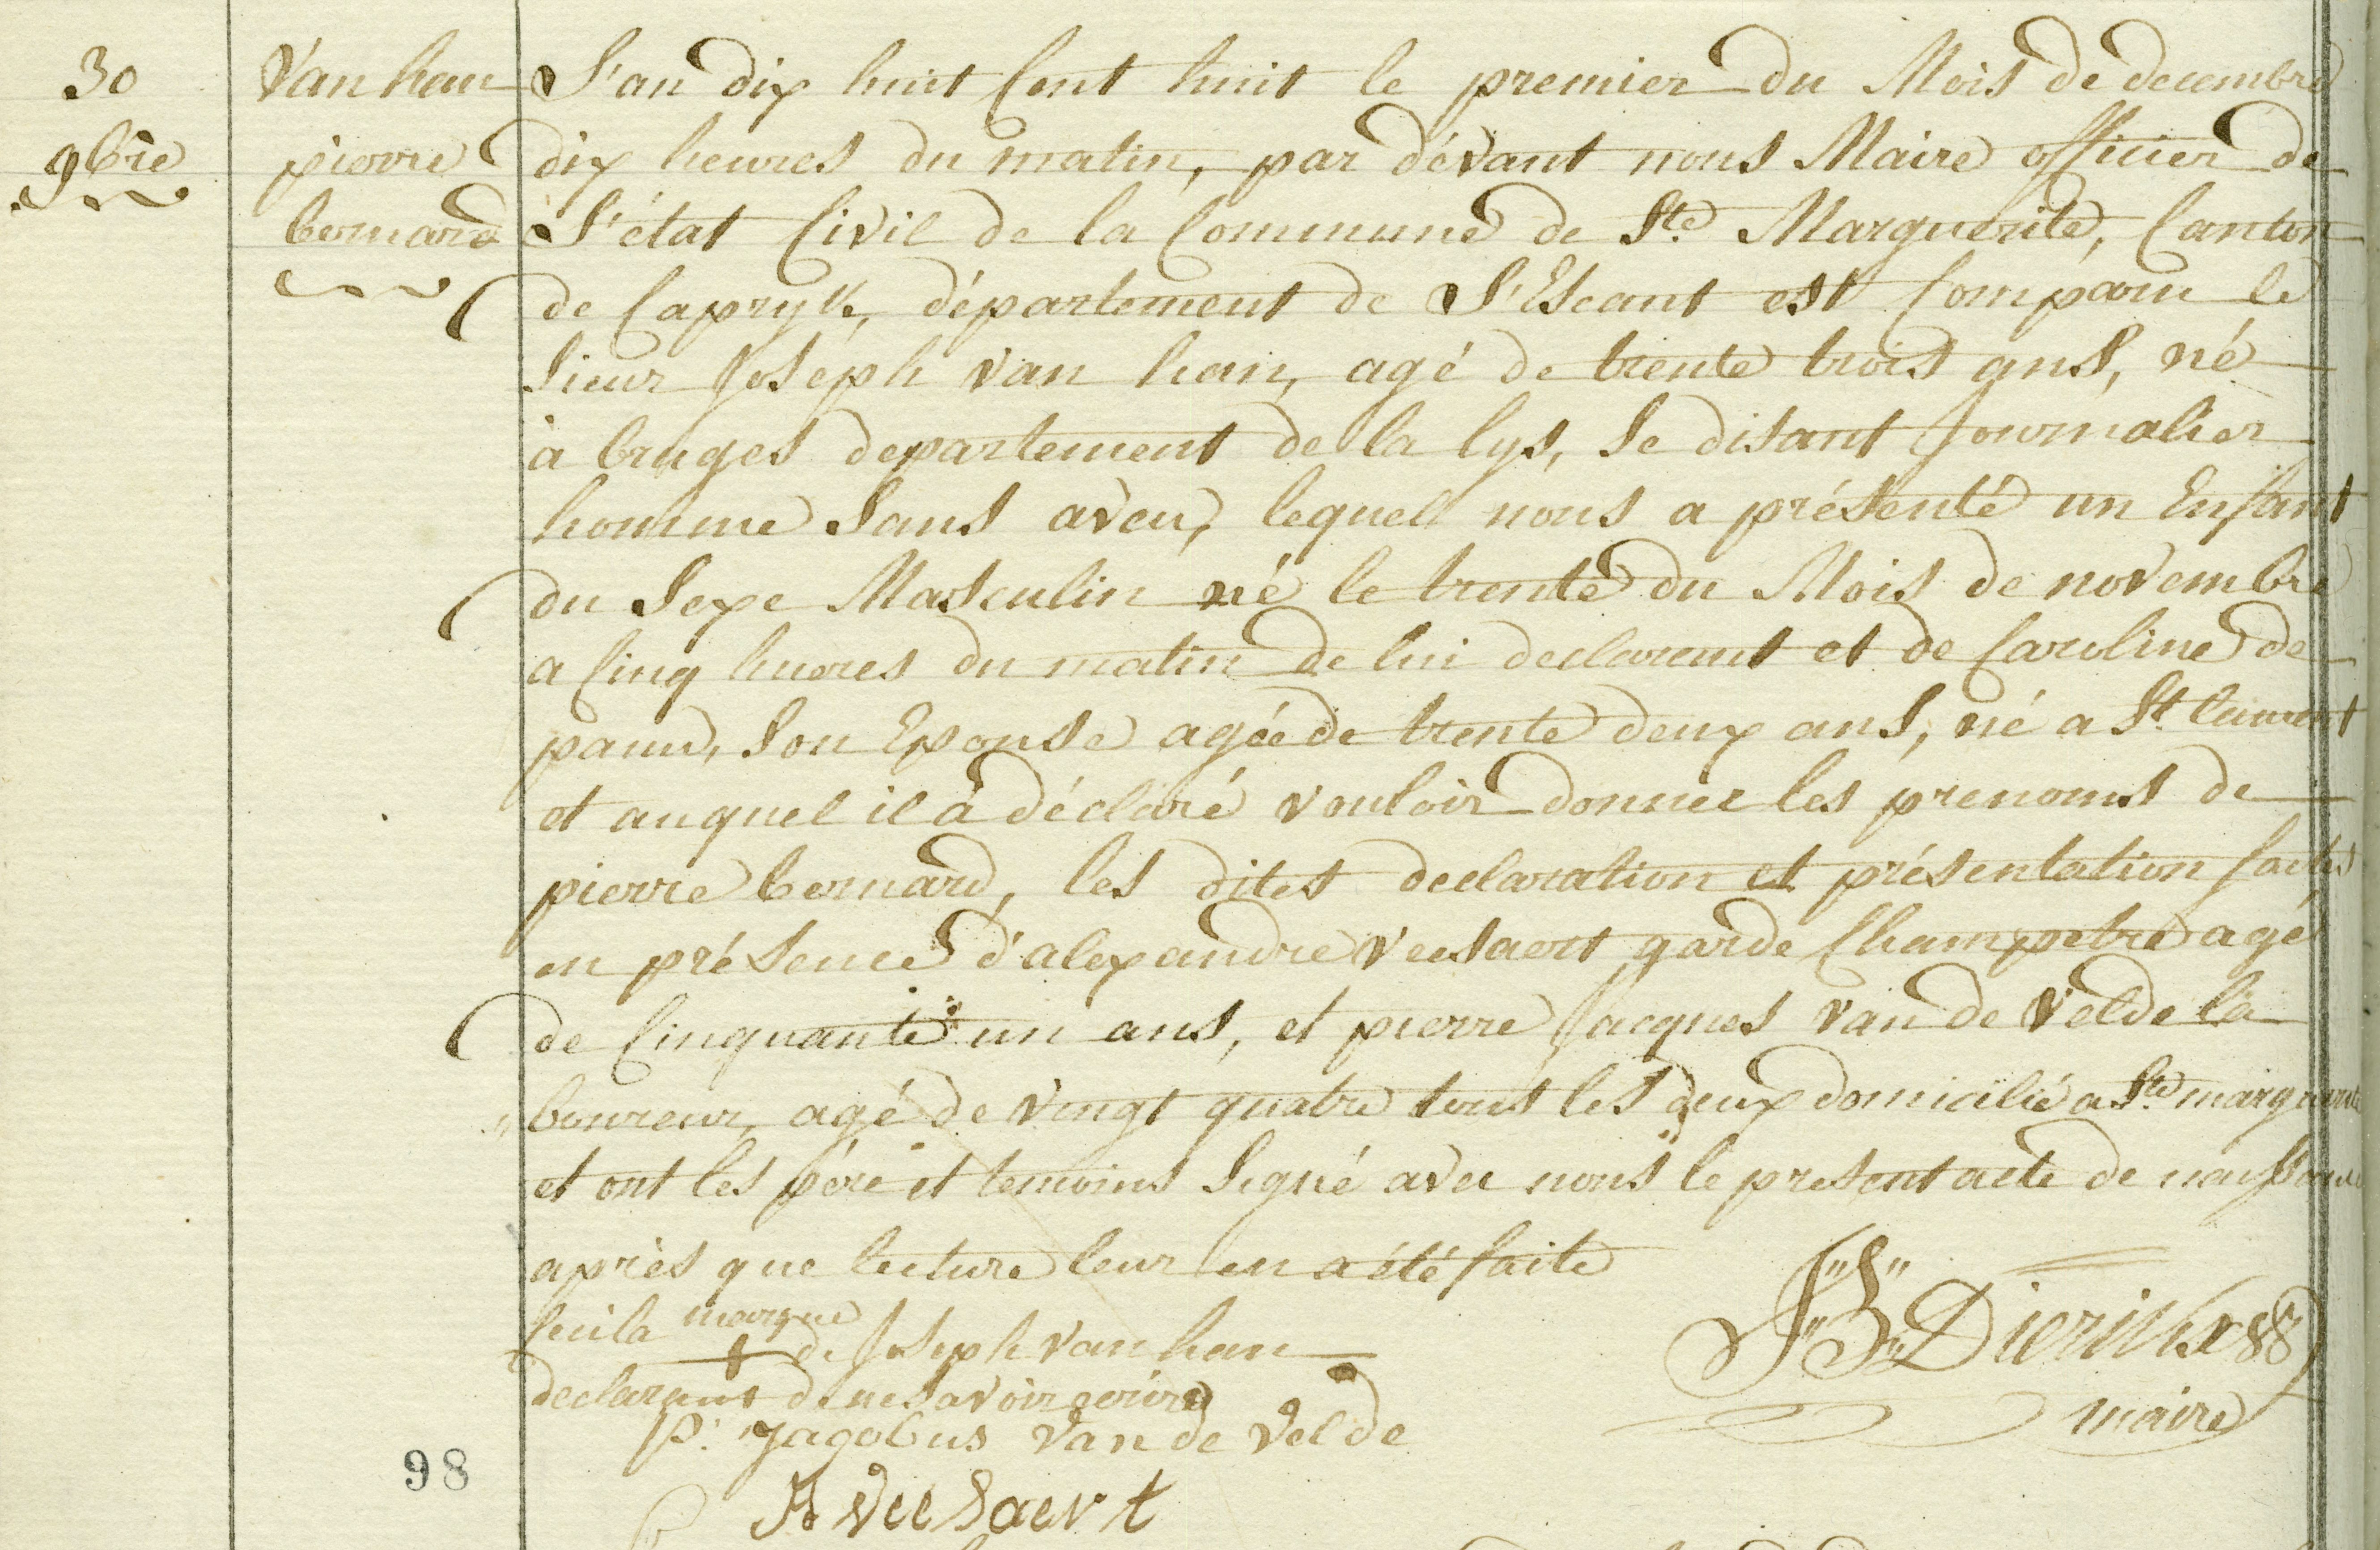 30
9bre
Van han
pierre
bernard
L'an dix huit Cent huit le premier du Mois de decembre
dix heures du matin, par dévant nous Maire officier de
L'état Civil de la Commune de Ste Marguerite, Canton
de Capryk, département de L'Escaut est Comparu le
Sieur Joseph van han, agé de trente trois ans, né
à bruges departement de la lys, Se disant Journalier
homme Sans aveu, lequel nous a présenté un Enfant
du Sexe Masculin né le trente du Mois de novembre
a Cinq hueres du matin de lui declarant et de Caroline de
pauw, Son Epouse agée de trente deux ans, né a St. laurent
et auquel il à déclaré vouloir donner les prenoms de
pierre bernard, les dites declaration et présentation faites
en présence d'alexandre veesaert garde Champetre agé
de Cinquante un ans, et pierre Jacques van de velde la
boureur, agé de vingt quatre tous les deux domicilié a Ste marguerite
et ont les pére et temoins Signé avec nous le present acte de naissance
après que lecture leur en a été faite
marque
de Joseph van han
declarant de ne savoir ecrire
P. Jagobus van de velde
A veesaert
J.B. Dierickx
maire
98